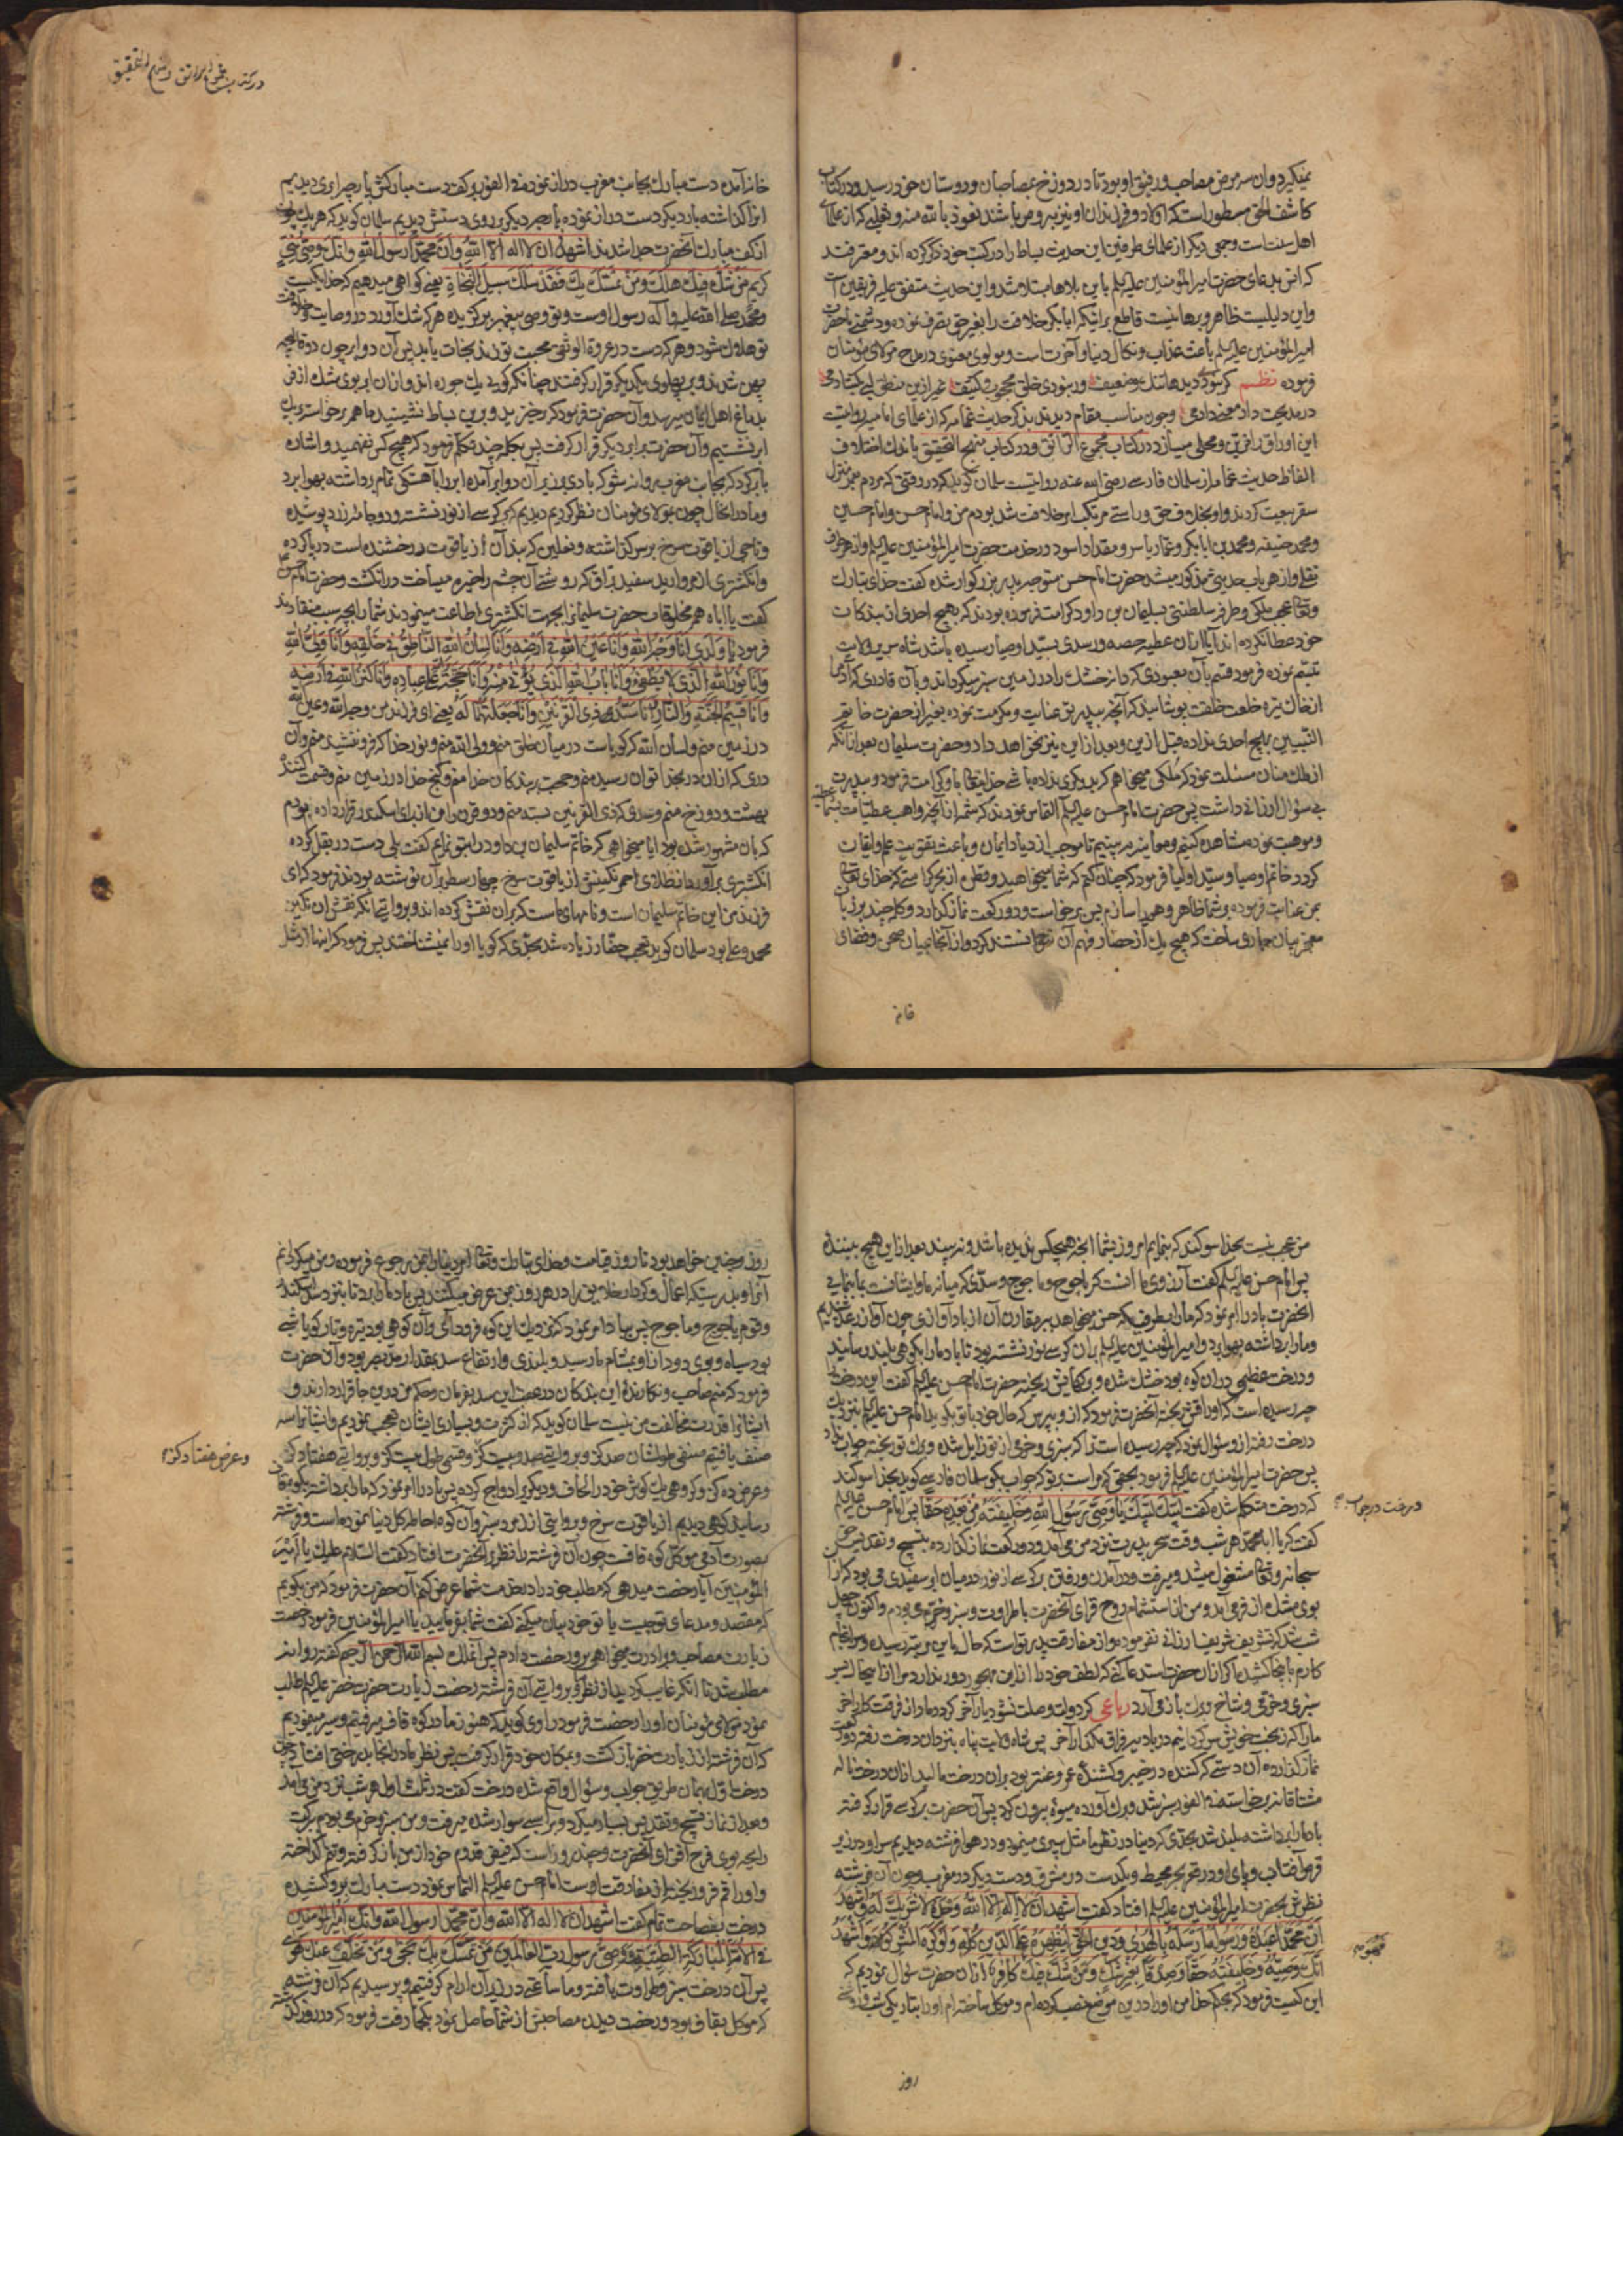 نمیکیرد وان سه مرض مصاحب و رفیق او بود تا در دوزخ بمصاحبان و دوستان خود رسید و در کتاب
کاشف الحق مسطور است که اولاد و فرزندان او نیز برومن باشند نعوذ بالله منه و ثعلبی که از علمای
اهل سنت است و جمعی دیگر از علمای طرفین این حدیث بساط را در کتب خود ذکر کرده اند و معترفند
که انس بدعای حضرت امیرالمؤمنین علیه السلم باین بلاها مبتلا شد و این حدیث متفق علیه فریقین است
واین دلیلیست ظاهر و برهانیست قاطع برانیکه ابابکر خلافت را بغیر حق تصرف نموده و دشمنی با حضرت
امیرالمؤمنین علیه السلم باعث عذاب و نکال دنیا و آخرتست و مولوی معنوی در مدح مولای مؤمنان
فرموده نظم
در مدیحت داد معنی دادمی وچون مناسب مقام دیدند بذکر حدیث غمامه که از علمای امامیه روایت
این اوراق را مزین و محلی میسازد در کتاب مجموع الرائق و در کتاب منهج التحقیق باندک اختلاف
الفاظ حدیث غمامه از سلمان فارسی رضی الله عنه روایتست سلمان کوید که در وقتی که مردم عمر
بیعت کردند و او بخلاف حق و راستی مرتکب امر خلافت شد بودم من و امام حسن و امام حسین
و محمد حنیفه و محمد بن ابابکر و عمار یاسر و مقداد اسود در خدمت حضرت امیرالمؤمنین علیه السلم و از هر طرف
نقلی و از هر باب حدیثی مذکور میشد حضرت امام حسن متوجه پدر بزرکوار شده کفت خدای تبارک
وتعالی عجب ملکی و طرفه سلطنتی بسلیمان بن داود کرامت فرموده بودند که بهیچ احدی از بندکان
خود عطا نکرده اند آیا از ان عطیه حصه و رسدی بسید اوصیا رسیده باشد شاه سریر ولایت
تبسم نموده فرمود قسم بآن معبودی که دانه خشک را در زمین سبز میکرداند و بآن قادری که آدم را
از خاک تیره خلعت خلقت پوشانید که آنچه بپدر تو عنایت و مکرمت نموده بغیر از حضرت خاتم
النبیین بهیچ احدی نداده قبل ازین و بعد از این نیز نخواهد داد و حضرت سلیمان بعد از آنکه
از ملک منان مسئلت نمود که ملکی میخواهم که بدیکری نداده باشی خدایتعالی باو کرامت فرمود و بپدرت
بی سؤال ارزانی داشت پس حضرت امام حسن علیه السلم التماس نمودند که شمه از آنچه واهب عطیات بشما
و موهبت نموده مشاهده کنیم و معاینه به بینیم تا موجب ازدیاد ایمان و باعث تقویت علم و ایقان
کردد خاتم اوصیا و سید اولیا فرمود که چنان کنم که شما میخواهید و قطره از بحر کرامتی که خدای تعالی
بمن عنایت فرموده بر شما ظاهر و هویدا سازم پس برخاست و دو رکعت نماز کذارد و کلمه چند بر زبان
معجز بیان جاری ساخت که هیچ یک از حضار فهم آن نتوانستند کرد و از آنجا بمیان صحن و فضای
خانه
در کتاب مجموع الرائق و منهج التحقیق
خانه آمده دست مبارک بجانب مغرب دراز نموده فی الفور بر کف دست مبارکش پارچه ابری دیدیم
انرا کذاشته بار دیکر دست دراز نموده پارچه دیکر بر روی دستش دیدیم سلمان کوید که هر یک چون
از کف مبارک آنحضرت جدا شدند اشهد ان لا اله الا الله وان محمدا رسول الله وانک وصی نبی
کریم من شک فیک هلک ومن تمسک بک فقد سلک سبیل النجاة یعنی کواهی میدهیم که خدا یکیست
ومحمد صلی الله علیه وآله رسول اوست و تو وصی پیغمبر برکزیده هر که شک آورد در وصایت و خلافت
تو هلاک شود و هر که دست در عروة الوثقی محبت تو زند نجات یابد پس آن دو ابر چون دو قالیچه
پهن شدند و بر پهلوی یکدیکر قرار کرفتند چنانکه کوئی یک جزوه اند و از ان ابر بوی مشک اذفر
بدماغ اهل ایمان میرسد و آن حضرت فرمود که برخیزید و برین بساط نشینید ما همه برخواسته بر یک
ابر نشستیم و آن حضرت بر ابر دیکر قرار کرفت پس بکلمه چند تکلم فرمود که هیچ کس نفهمید و اشاره
بابر کرد که بجانب مغرب روانه شو که بادی بزیر آن دو ابر آمده ابر را بآهستکی تمام برداشته بهوا برد
وما در انحال چون بمولای مؤمنان نظر کردیم دیدیم که بر کرسی از نور نشسته و دو جامه زرد پوشیده
و تاجی از یاقوت سرخ بر سر کذاشته و نعلین که بند آن از یاقوت درخشنده است در پا کرده
وانکشتری از مروارید سفید براق که روشنی آن چشم را خیره میساخت در انکشت و حضرت امام حسن
کفت یا اباه همه مخلوقات حضرت سلیمانرا بجهت انکشتری اطاعت مینمودند شما را بچه سبب منقادند
فرمود یا ولدی انا وجه الله وانا عین الله فی ارضه وانا لسان الله الناطق فی خلقه وانا ولی الله
وانا نور الله الذی لا یطفی وانا باب الله الذی یؤتی منه وانا حجته علی عباده وانا کنز الله فی ارضه
وانا قسیم الجنة والنار وانا سد ذی القرنین
درزمین منم ولسان الله که کویاست در میان خلق منم وولی الله منم ونور خدا که فرو ننشیند منم وآن
دری که از ان در بخدا توان رسید منم وحجت بر بندکان خدا منم وکنج خدا در زمین منم وقسمت کننده
بهشت و دوزخ منم
که بان مشهور شده بود ایا میخواهی که خاتم سلیمان بن داود را بتو نمایم کفت بلی دست در بغل کرده
انکشتری برآورد از طلای احمر نکینش از یاقوت سرخ چهار سطر بر آن نوشته بودند فرمود که ای
فرزند من این خاتم سلیمان است و نامهای ماست که بران نقش کرده اند و بروایتی انکه نقش ان نکین
محمد و علی بود سلمان کوید تعجب حضار زیاده شد بحدی که کویا او را نمیشناختند پس فرمود که اینها از مثل
من عجب نیست بخدا سوکند که بنمایم امروز بشما آنچه هیچکس ندیده باشد و نه بیند بعد از این هیچ بیننده
پس امام حسن علیه السلم کفت آرزوی ما آنست که یاجوج و ماجوج و سدی که میانه ما و ایشانست بما بنمایی
آنحضرت باد را امر نمود که ما را بطرفی که حسن میخواهد ببر مقارن آن از باد آوازی چون آواز رعد شنیدیم
وما را برداشته بهوا برد و امیرالمؤمنین علیه السلم بران کرسی نور نشسته بود تا باد ما را بکوهی بلند رسانید
و درخت عظیمی در ان کوه بود خشک شده و برکهایش ریخته حضرت امام حسن علیه السلم کفت این درخت را
چه رسیده است که اوراقش ریخته آنحضرت فرمود که از و بپرس که حال خود با تو بکوید امام حسن علیه السلم بنزدیک
درخت رفته از و سؤال نمود که چه رسیده است ترا که سبزی و خرمی از تو زایل شده و برک تو ریخته جواب نداد
پس حضرت امیرالمؤمنین علیه السلم فرمود بحقی که مراست بر تو که جواب بکو سلمان فارسی کوید بخدا سوکند
که درخت متکلم شده کفت لبیک لبیک یا وصی رسول الله وخلیفته من بعده حقا پس امام حسن علیه السلم
درخت در جواب
کفت که یا ابا محمد هر شب وقت سحر پدرت نزد من می آمد و دو رکعت نماز کذارده بتسبیح و تقدیس حق
سبحانه وتعالی مشغول میشد و میرفت و در آمدن و رفتن بر کرسی از نور در میان ابر سفیدی می بود که از آن
بوی مشک اذفر می آمد و من از استشمام روح افزای آنحضرت باطراوت و سبز و خرم می بودم و اکنون چهل
شب شد که تشریف شریف ارزانی نفرموده و از مفارقت پدر تو است که حال باین مرتبه رسیده و سرانجام
کارم باینجا کشید
سبزی و خرمی و شاخ و برک باز می آرد رباعی کر دولت وصلت نشود یار آخر کردد مادر از فرقت کار آخر
ما را که ز بخت خویش سرکردانیم در بادیه فراق مکذار آخر پس شاه ولایت پناه بنزد آن درخت رفته دو رکعت
نماز کذارده آن دستی که کننده در خیبر و کشنده عمرو عنتر بود بران درخت مالید از ان درخت ناله
مشتاقانه برخاسته فی الفور سبز شد و برک آورده میوه بیرون کرد پس آن حضرت بر کرسی قرار کرفته
باد ما را برداشته بلند شد بحدی که دنیا در نظر ما مثل سپری مینمود و در هوا فرشته دیدیم سر او در زیر
قرص آفتاب و پای او در قعر بحر محیط و یکدست در مشرق و دست دیکر در مغرب و چون آن فرشته
نظرش بحضرت امیرالمؤمنین علیه السلم افتاد کفت اشهد ان لا اله الا الله وحده لا شریک له واشهد
ان محمدا عبده ورسوله ارسله بالهدی ودین الحق لیظهره علی الدین کله ولو کره المشرکون واشهد
انک وصیه وخلیفته حقا وصدقا بغیر شک ومن شک فیک کافر از ان حضرت سؤال نمودیم که
این کیست فرمود که بحکم خدا من او را درین موضع نصب کرده ام و موکل ساخته ام او را بتاریکی شب و روشنی
روز
روز و چنین خواهد بود تا روز قیامت و خدای تبارک وتعالی امر دنیا را بمن رجوع فرموده و من میکردانم
آنرا و بدرستیکه اعمال و کردار خلایق را در هر روز بمن عرض میکنند پس باد ما را برد تا بنزد سد اسکندر
و قوم یاجوج و ماجوج پس بباد امر نمود که نزدیک این کوه فرود آی و آن کوهی بود تیره و تار کویا شب
بود سیاه و بوی دود از او بمشام ما رسید و بلندی و ارتفاع سد بمقدار مد بصر بود و آن حضرت
فرمود که منم صاحب و نکارنده این بندکان در عقب این سد بفرمان و حکم من درین جا قرار دارند و
ایشانرا قدرت مخالفت من نیست سلمان کوید که از کثرت و بسیاری ایشان تعجب نمودیم و ایشانرا سه
صنف یافتیم صنفی طولشان صد کز و بروایتی صد و بیست کز و قسمی طول بیست کز و بروایتی هفتاد کز
و عرض هفتاد کز
و عرض ده کز و کروهی یک کوش خود را لحاف و دیکریرا دواج کرده پس باد را امر نمود که ما را برداشته بکوه قاف
رسانید کوهی دیدیم از یاقوت سرخ و بروایتی از زمرد سبز و آن کوه احاطه کل دنیا نموده است و فرشته
بصورت آدمی موکل کوه قافست چون آن فرشته را نظر بر آنحضرت افتاد کفت السلام علیک یا امیر
المؤمنین آیا رخصت میدهی که مطلب خود را در خدمت شما عرض کنم آن حضرت فرمود که من بکویم
که مقصد و مدعای تو چیست یا تو خود بیان میکنی کفت شما بفرمایید یا امیرالمؤمنین فرمود رخصت
زیارت مصاحب و برادرت میخواهی برو رخصت دادم پس آن ملک بسم الله الرحمن الرحیم کفته روانه
مطلب شد تا انکه غایب کردید از نظر و بروایتی آن فرشته رخصت زیارت حضرت خضر علیه السلم طلب
نمود مولای مؤمنان او را رخصت فرمود راوی کوید که هنوز ما در کوه قاف میرفتیم و سیر مینمودیم
که آن فرشته از زیارت خضر باز کشت و بمکان خود قرار کرفت پس نظر ما در انجا بدرختی افتاد که چون
درخت اول بهمان طریق جواب و سؤال واقع شده درخت کفت در ثلث اول هر شب نزد من می آمد
و بعد از نماز تسبیح و تقدیس بسیار میکرد و بر اسبی سوار شده میرفت و من سبز و خرم می بودم ببرکت
رایحه بوی فرح افزای آنحضرت و چند روز است که فیض قدم خود از من باز کرفته و تنم کداخته
و اوراقم فرو ریخته از مفارقت اوست امام حسن علیه السلم التماس نمود دست مبارک برو کشیده
درخت بفصاحت تمام کفت اشهد ان لا اله الا الله وان محمدا رسول الله وانک امیرالمؤمنین
فی الامة المبارکة الطیبة ووصی رسول رب العالمین من تمسک بک نجی ومن تخلف عنک هوی
پس آن درخت سبز و طراوت یافته و ما ساعتی در زیر آن آرام کرفتیم و پرسیدیم که آن فرشته
که موکل بقاف بود و رخصت دیدن مصاحبش از شما حاصل نمود بکجا رفت فرمود که در روز کذشته